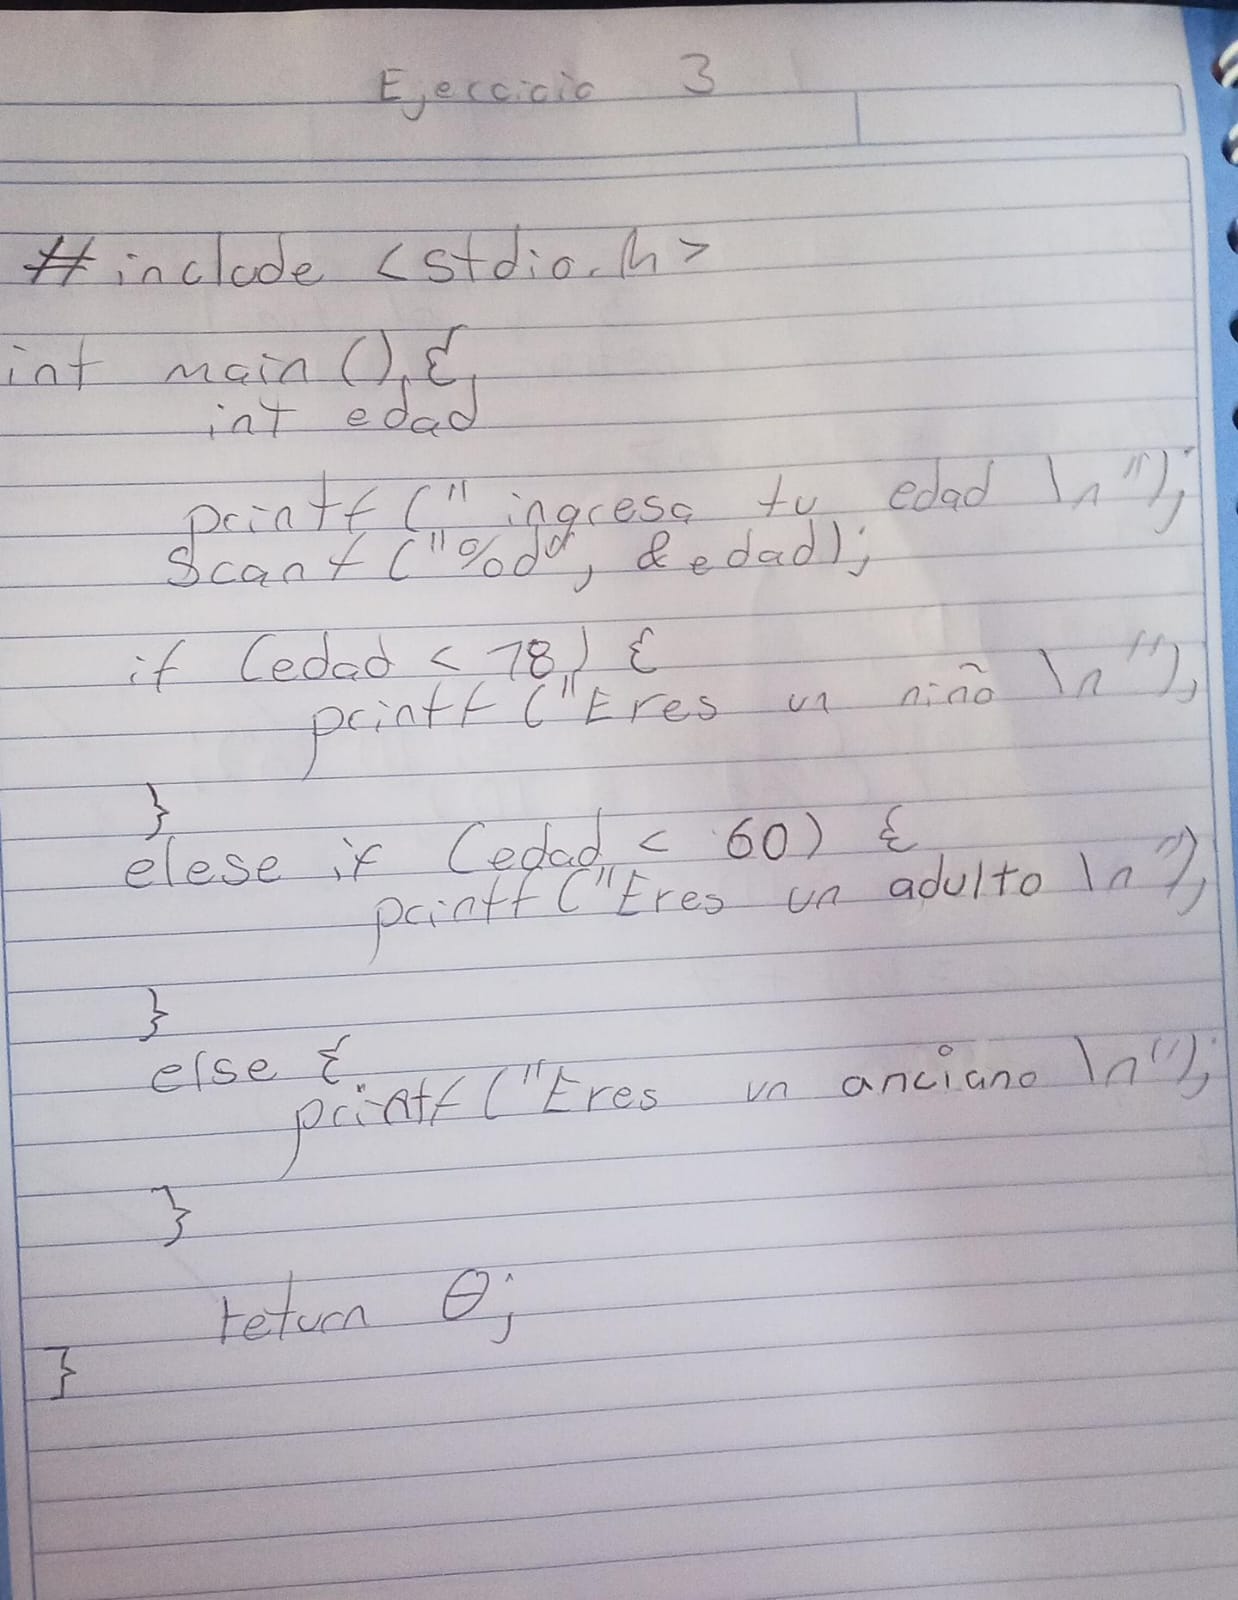 Ejercicio 3
#include <stdio.h>
int main () {
int edad
printf (" ingresa tu edad \n");
Scanf ("%d", &edad);
if (edad < 18) {
printf ("Eres un niño \n");
}
elese if (edad < 60) {
printf ("Eres un adulto \n");
}
else {
printf ("Eres un anciano \n");
}
return 0;
}